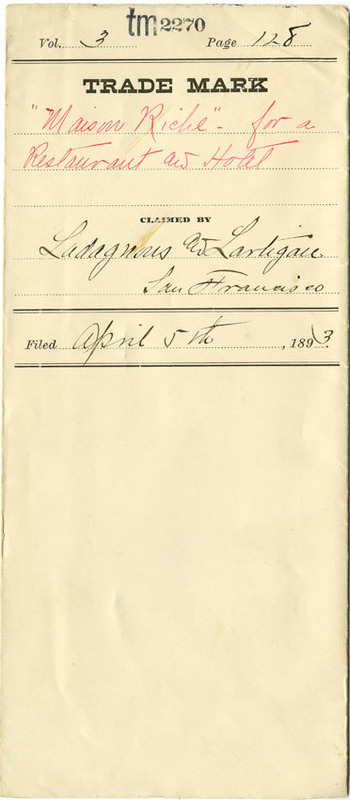 tm 2270
Vol. 3 Page 128
TRADE MARK
"Maison Riche" - for a
Restaurant and Hotel
CLAIMED BY
Ladagnous and Lartigau
San Francisco
Filed April 5th, 1893.